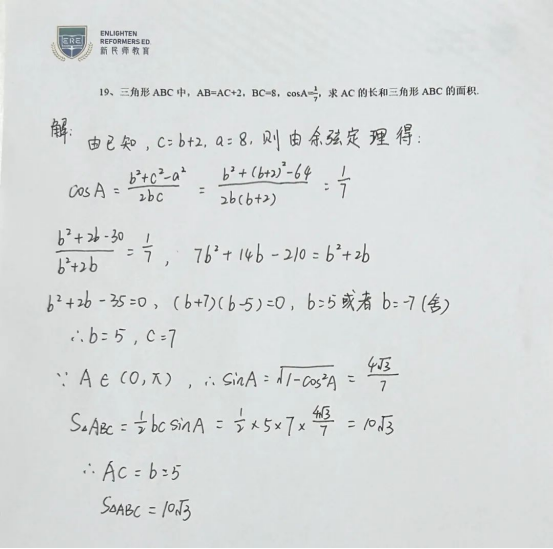 ENLIGHTEN
REFORMERS ED
新民师教育
ERE
19、三角形 ABC 中，AB=AC+2，BC=8，cosA=1/7，求 AC 的长和三角形 ABC 的面积.
解: 由已知，c=b+2, a=8, 则由余弦定理得:
cosA = (b²+c²-a²)/(2bc) = (b²+(b+2)²-64)/(2b(b+2)) = 1/7
(b²+2b-30)/(b²+2b) = 1/7 , 7b²+14b-210=b²+2b
b²+2b-35=0, (b+7)(b-5)=0, b=5或者b=-7(舍)
∴b=5, c=7
∵ A∈(0,π), ∴ sinA=√(1-cos²A) = 4√3/7
S△ABC=1/2 bc sinA = 1/2×5×7×4√3/7 = 10√3
∴ AC=b=5
S△ABC=10√3